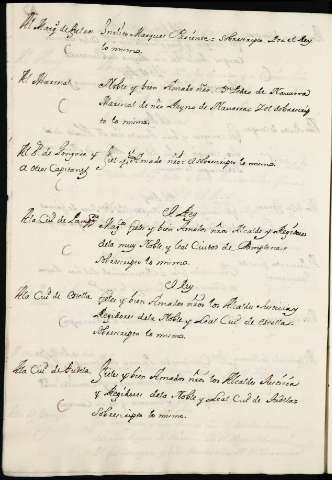 Al Marq.s de
Ilustre Marques Pariente = Sobrescripto Por el Rey
lo mismo.
Al Mariscal
Noble y bien Amado nro. Dn. Pedro de Navarra
Mariscal de nro Reyno de Navarra = Y el sobrescrip
to lo mismo.
Al de y
a otros Capitanes
fiel y Amado nro = el Sobrescripto lo mismo.
El Rey
Ala Ciud de Pamp.na
Mag.cos fieles y bien Amados nros Alcalde y Regidores
dela muy Noble y Leal Ciudad de Pamplona
Sobrescripto lo mismo.
El Rey
Ala Ciud de Estella
fieles y bien Amados nros los Alcaldes Justicia y
Regidores dela Noble y Leal Ciud de Estella
Sobrescripto lo mismo.
Ala Ciud de Tudela
fieles y bien Amados nros los Alcaldes Justicia
y Regidores dela Noble y Leal Ciud de Tudela
Sobrescripto lo mismo.